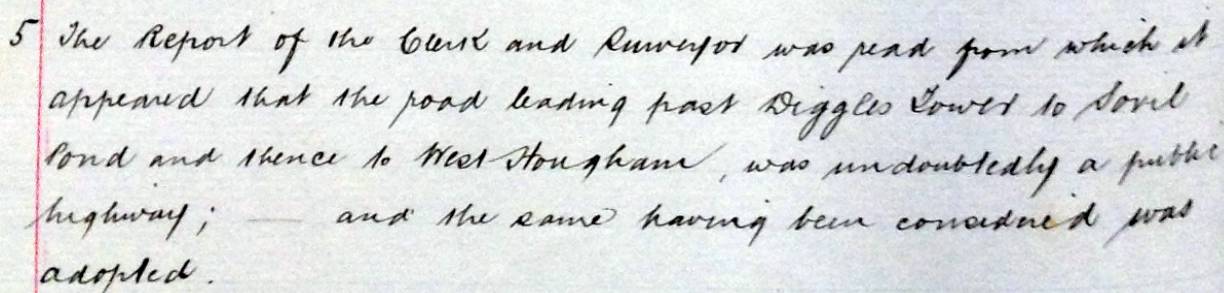 5 The Report of the Clerk and Surveyor was read from which it
appeared that the road leading past Diggles Tower to Sovil
Pond and thence to West Hougham, was undoubtedly a public
highway; — and the same having been considered was
adopted.